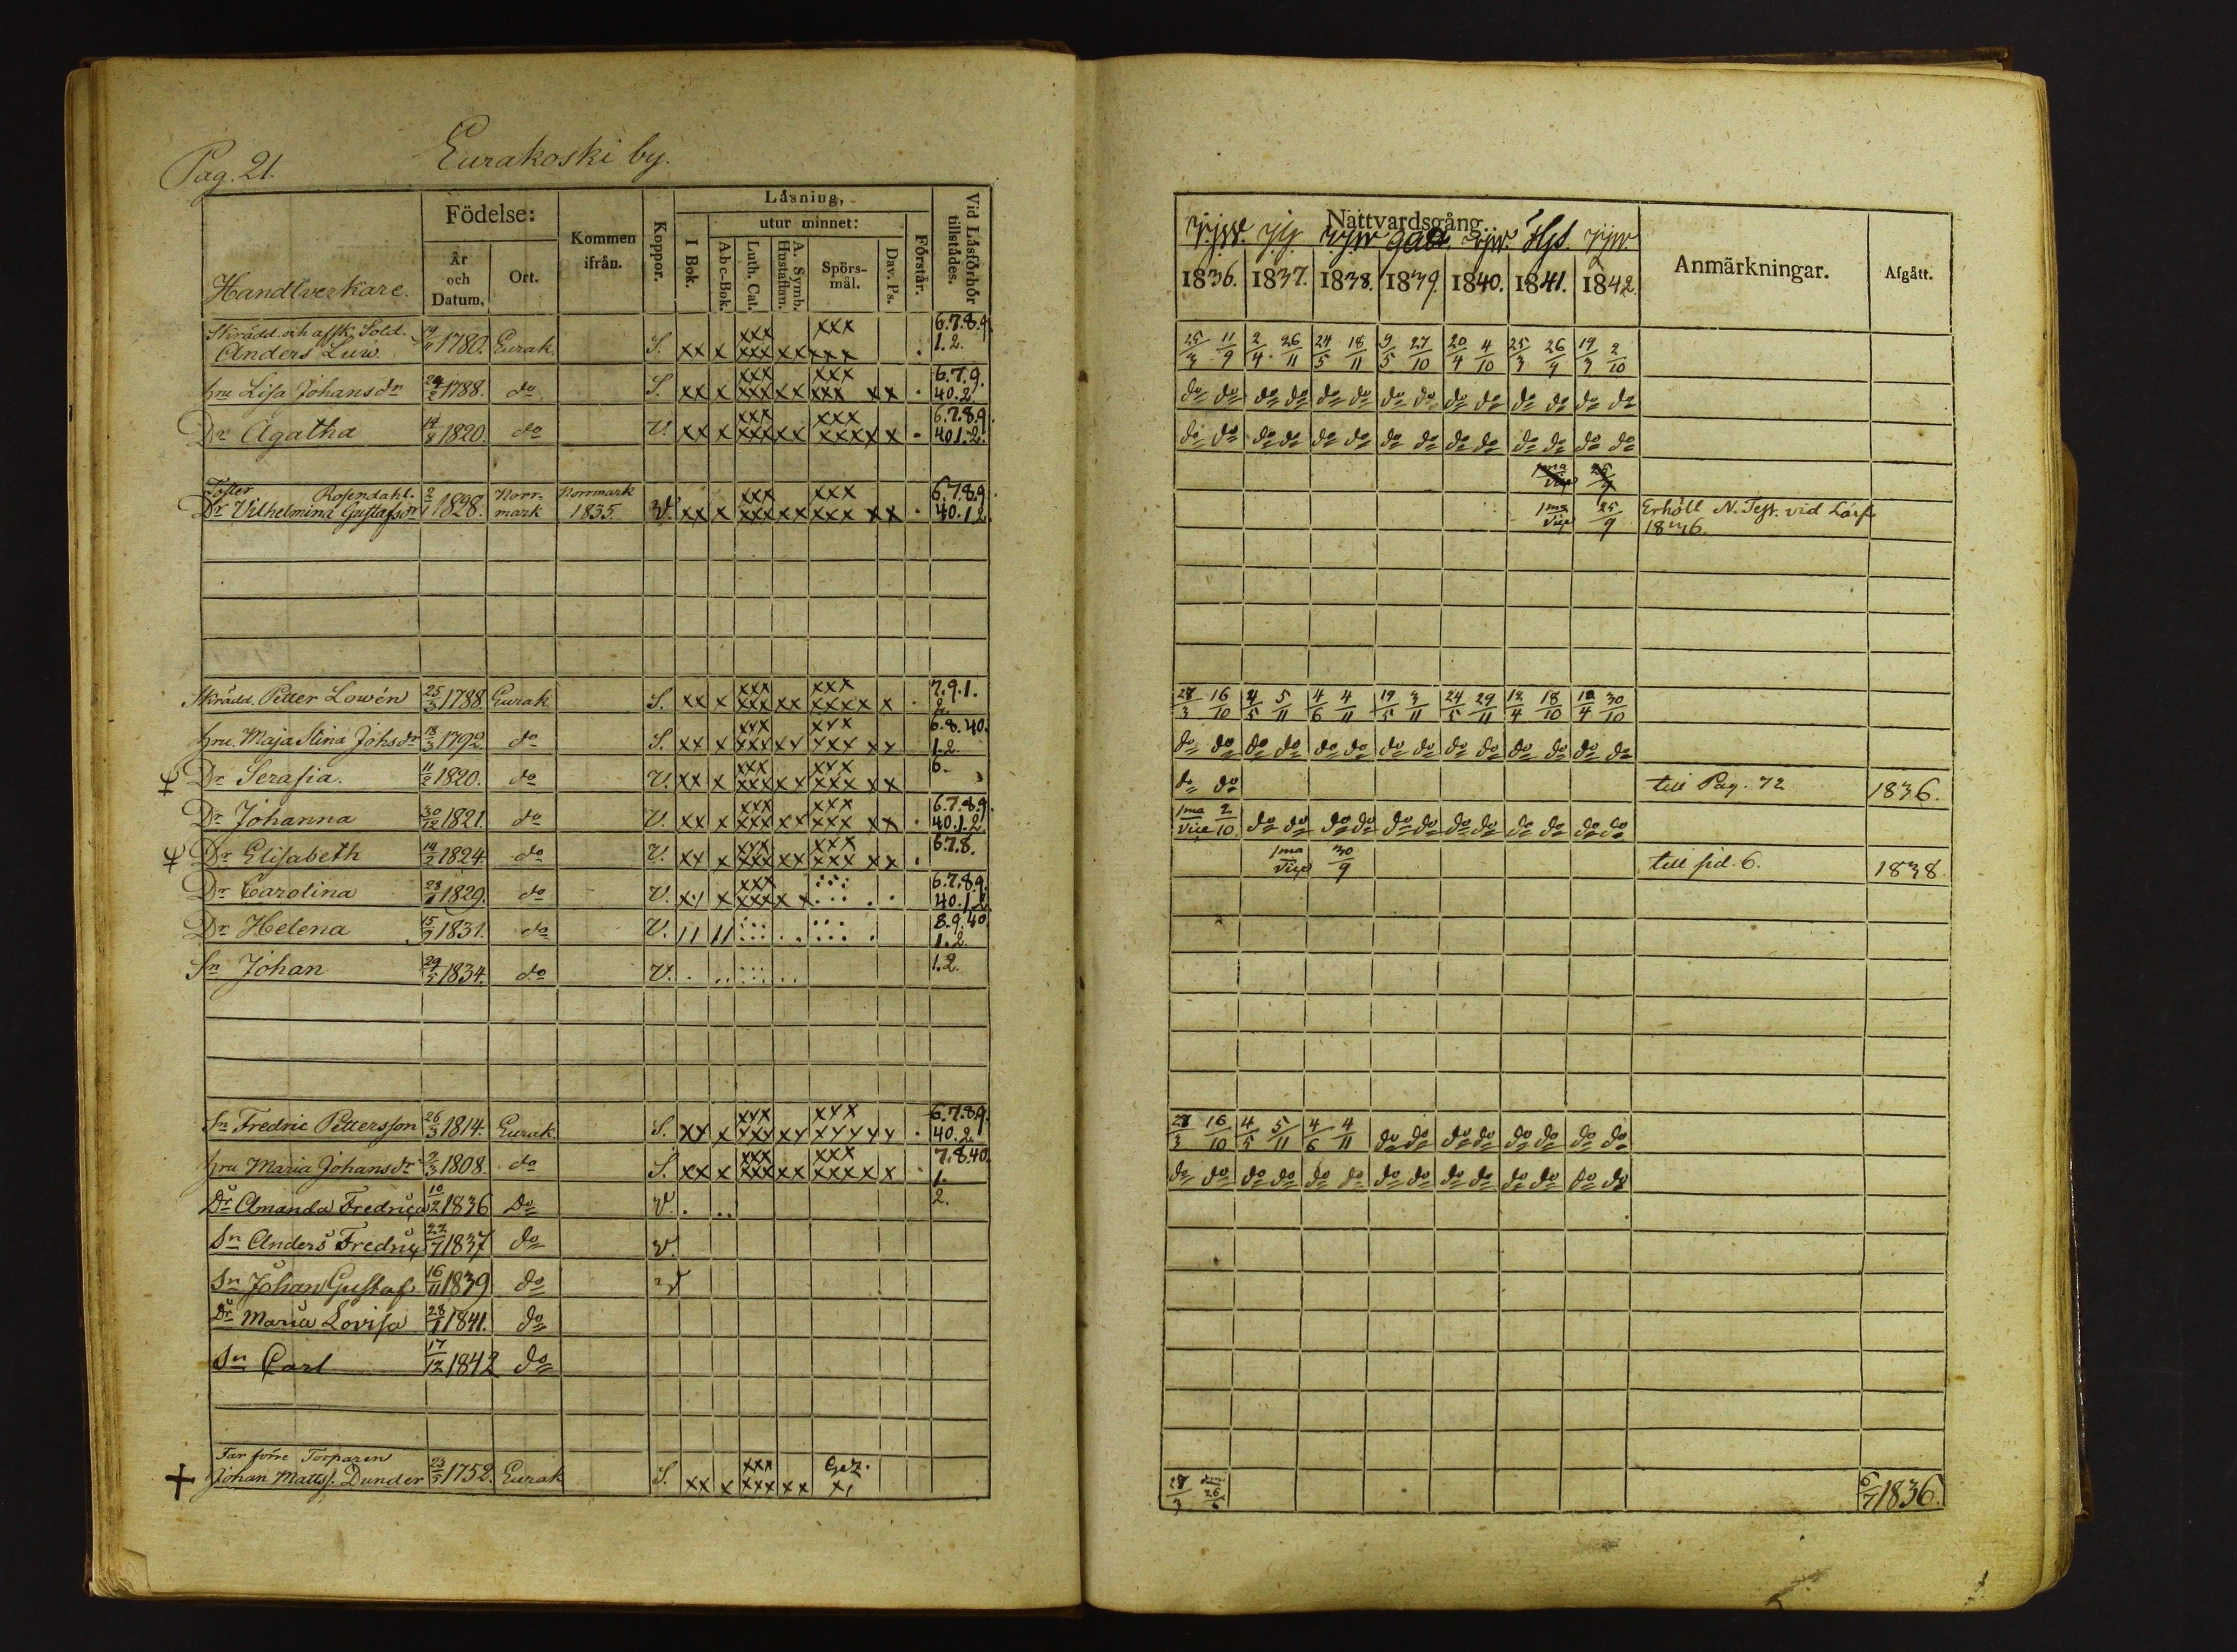 Pag. 21.
Eurakoski by.
Handtverkare.
Födelse:
År och Datum.
Ort.
Kommen ifrån.
Koppor.
Läsning,
I Bok.
utur minnet:
Abc-Bok.
Luth. Cat.
A. Symb. Hustaflan.
Spörs-mål.
Dav. Ps.
Förstår.
Vid Läsförhör tillstädes.
Skrädd. och afsk. Sold.
6.7.8.9.
Anders Luw 1780. Eurak. S. xx x xxx xx xxx 1.2.
6.7.9.
hru Lisa Johansdr 1788. do S. xx x xxx xx xxx xx . 40.2.
6.7.8.9.
Dr Agatha 14/8 1820. do V. xx x xxx xx xxxx x . 40.1.2.
Foster Rosendahl. Norr- Norrmark 6.7.8.9.
Dr Vilhelmina Gustafsdr 2/1 1828. mark 1835. V. xx x xxx xx xxx xx . 40.1.2.
Skrädd. Petter Lowén 25/3 1788. Eurak S. xx x xxx xx xxxx x . 7.9.1. 2.
hru. Maja Stina Johsdr 18/3 1792 do S. xx x xxx xx xxx xx 6.8.40. 1.2
Dr Serafia. 11/2 1820. do V. xx x xxx xx xxx xx 6.
Dr Johanna 30/12 1821. do V. xx x xxx xx xxx xx . 6.7.8.9. 40.1.2.
Dr Elisabeth 14/2 1824. do V. xx x xxx xx xxx xx . 6.7.8.
Dr Carolina 1829. do V. xx x xxx xx 6.7.8.9. 40.1.2.
Dr Helena 1831. do V. 8.9.40 1.2.
Sn Johan 29/5 1834. do V. 1.2.
Sn Fredric Pettersson 26/3 1814. Eurak S. xx x xxx xx xxxx x . 6.7.8.9. 40.2.
hru Maria Johansdr 2/3 1808. do S. xx x xxx xx xxxx x . 7.8.40. 1.
Dr Amanda Fredrica 10/2 1836 Do V. 2.
Sn Anders Fredric 22/7 1837 do V.
Sn Johan Gustaf 16/11 1839 do V
Dr Maria Lovisa 28/1 1841. do
Sn Carl 17/12 1842 do
Far förre Torparen
Johan Matts. Dunder 23/5 1752. Eurak S. xx x xxx xx
Nattvardsgång.
1836. 1837. 1838. 1839. 1840. 1841. 1842.
Anmärkningar.
Afgått.
25/3 11/9 2/4 26/11 24/5 18/11 9/5 27/10 20/4 4/10 25/3 26/9 19/3 2/10
do do do do do do do do do do do do do do
do do do do do do do do do do do do do do
1ma Vice 25/9 Erhöll N. Test. vid Läsf.
1836.
28/3 16/10 4/5 5/11 4/6 4/11 19/5 3/11 24/5 29/11 12/4 18/10 12/4 30/10
do do do do do do do do do do do do do do
do do till Pag. 72 1836.
1ma Vice 2/10 do do do do do do do do do do do do
1ma Vice 30/9 till sid. 6. 1838.
28/3 16/10 4/5 5/11 4/6 4/11 do do do do do do do do
do do do do do do do do do do do do do do
28/3 26/6 6/7 1836.